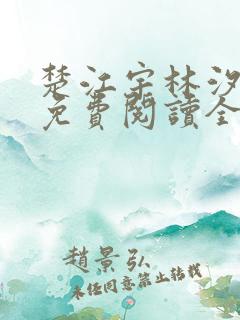 楚江宗林汐
免費閱讀全
趙景弘
未经同意禁止转载